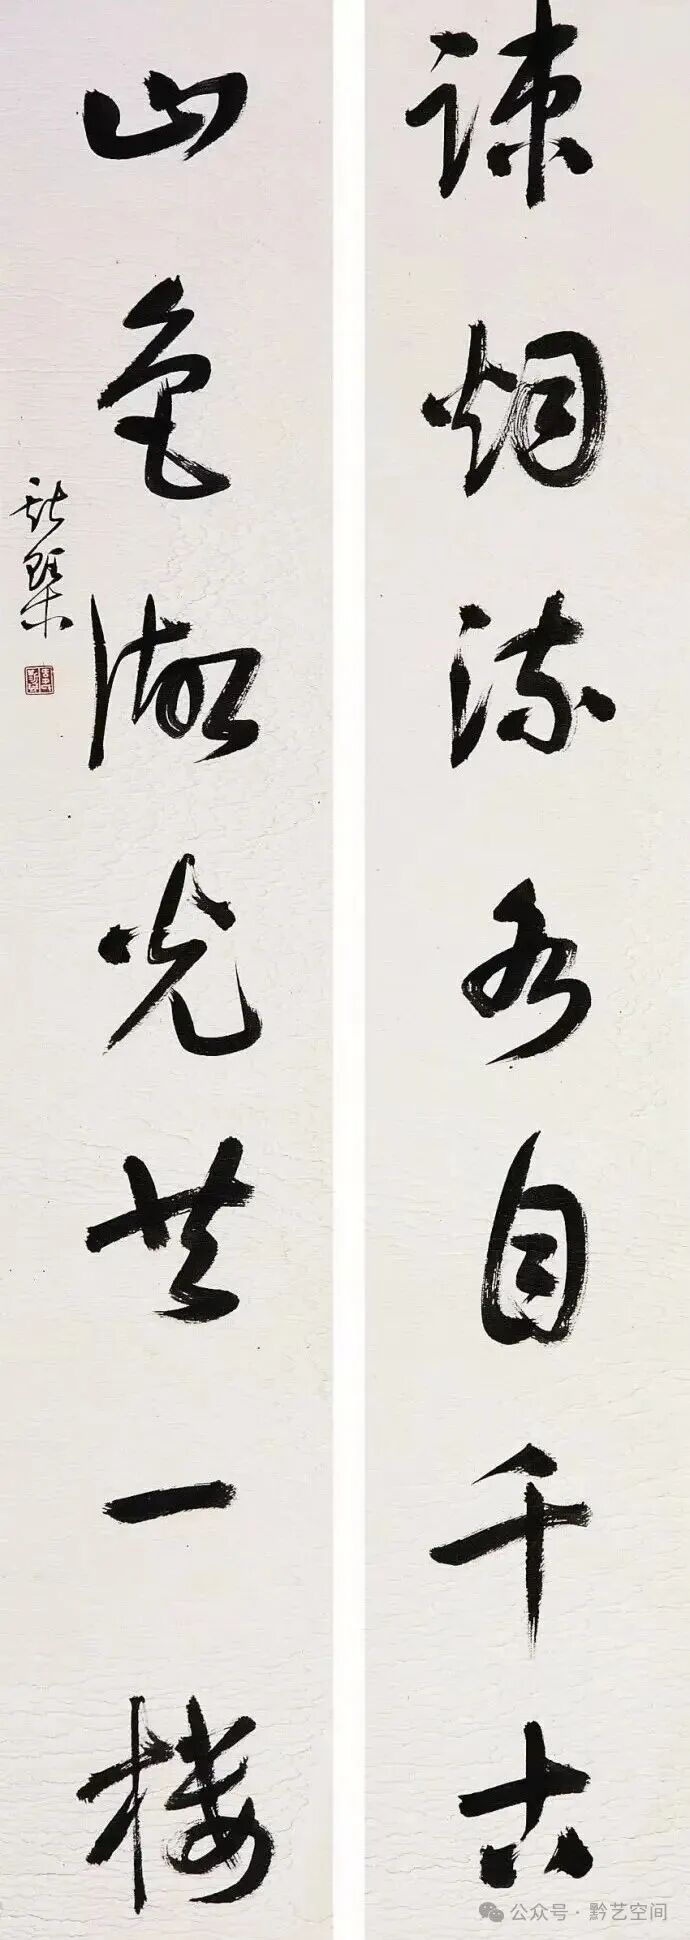 疎烟流水自千古
山色湖光共一楼
公众号·黔艺空间